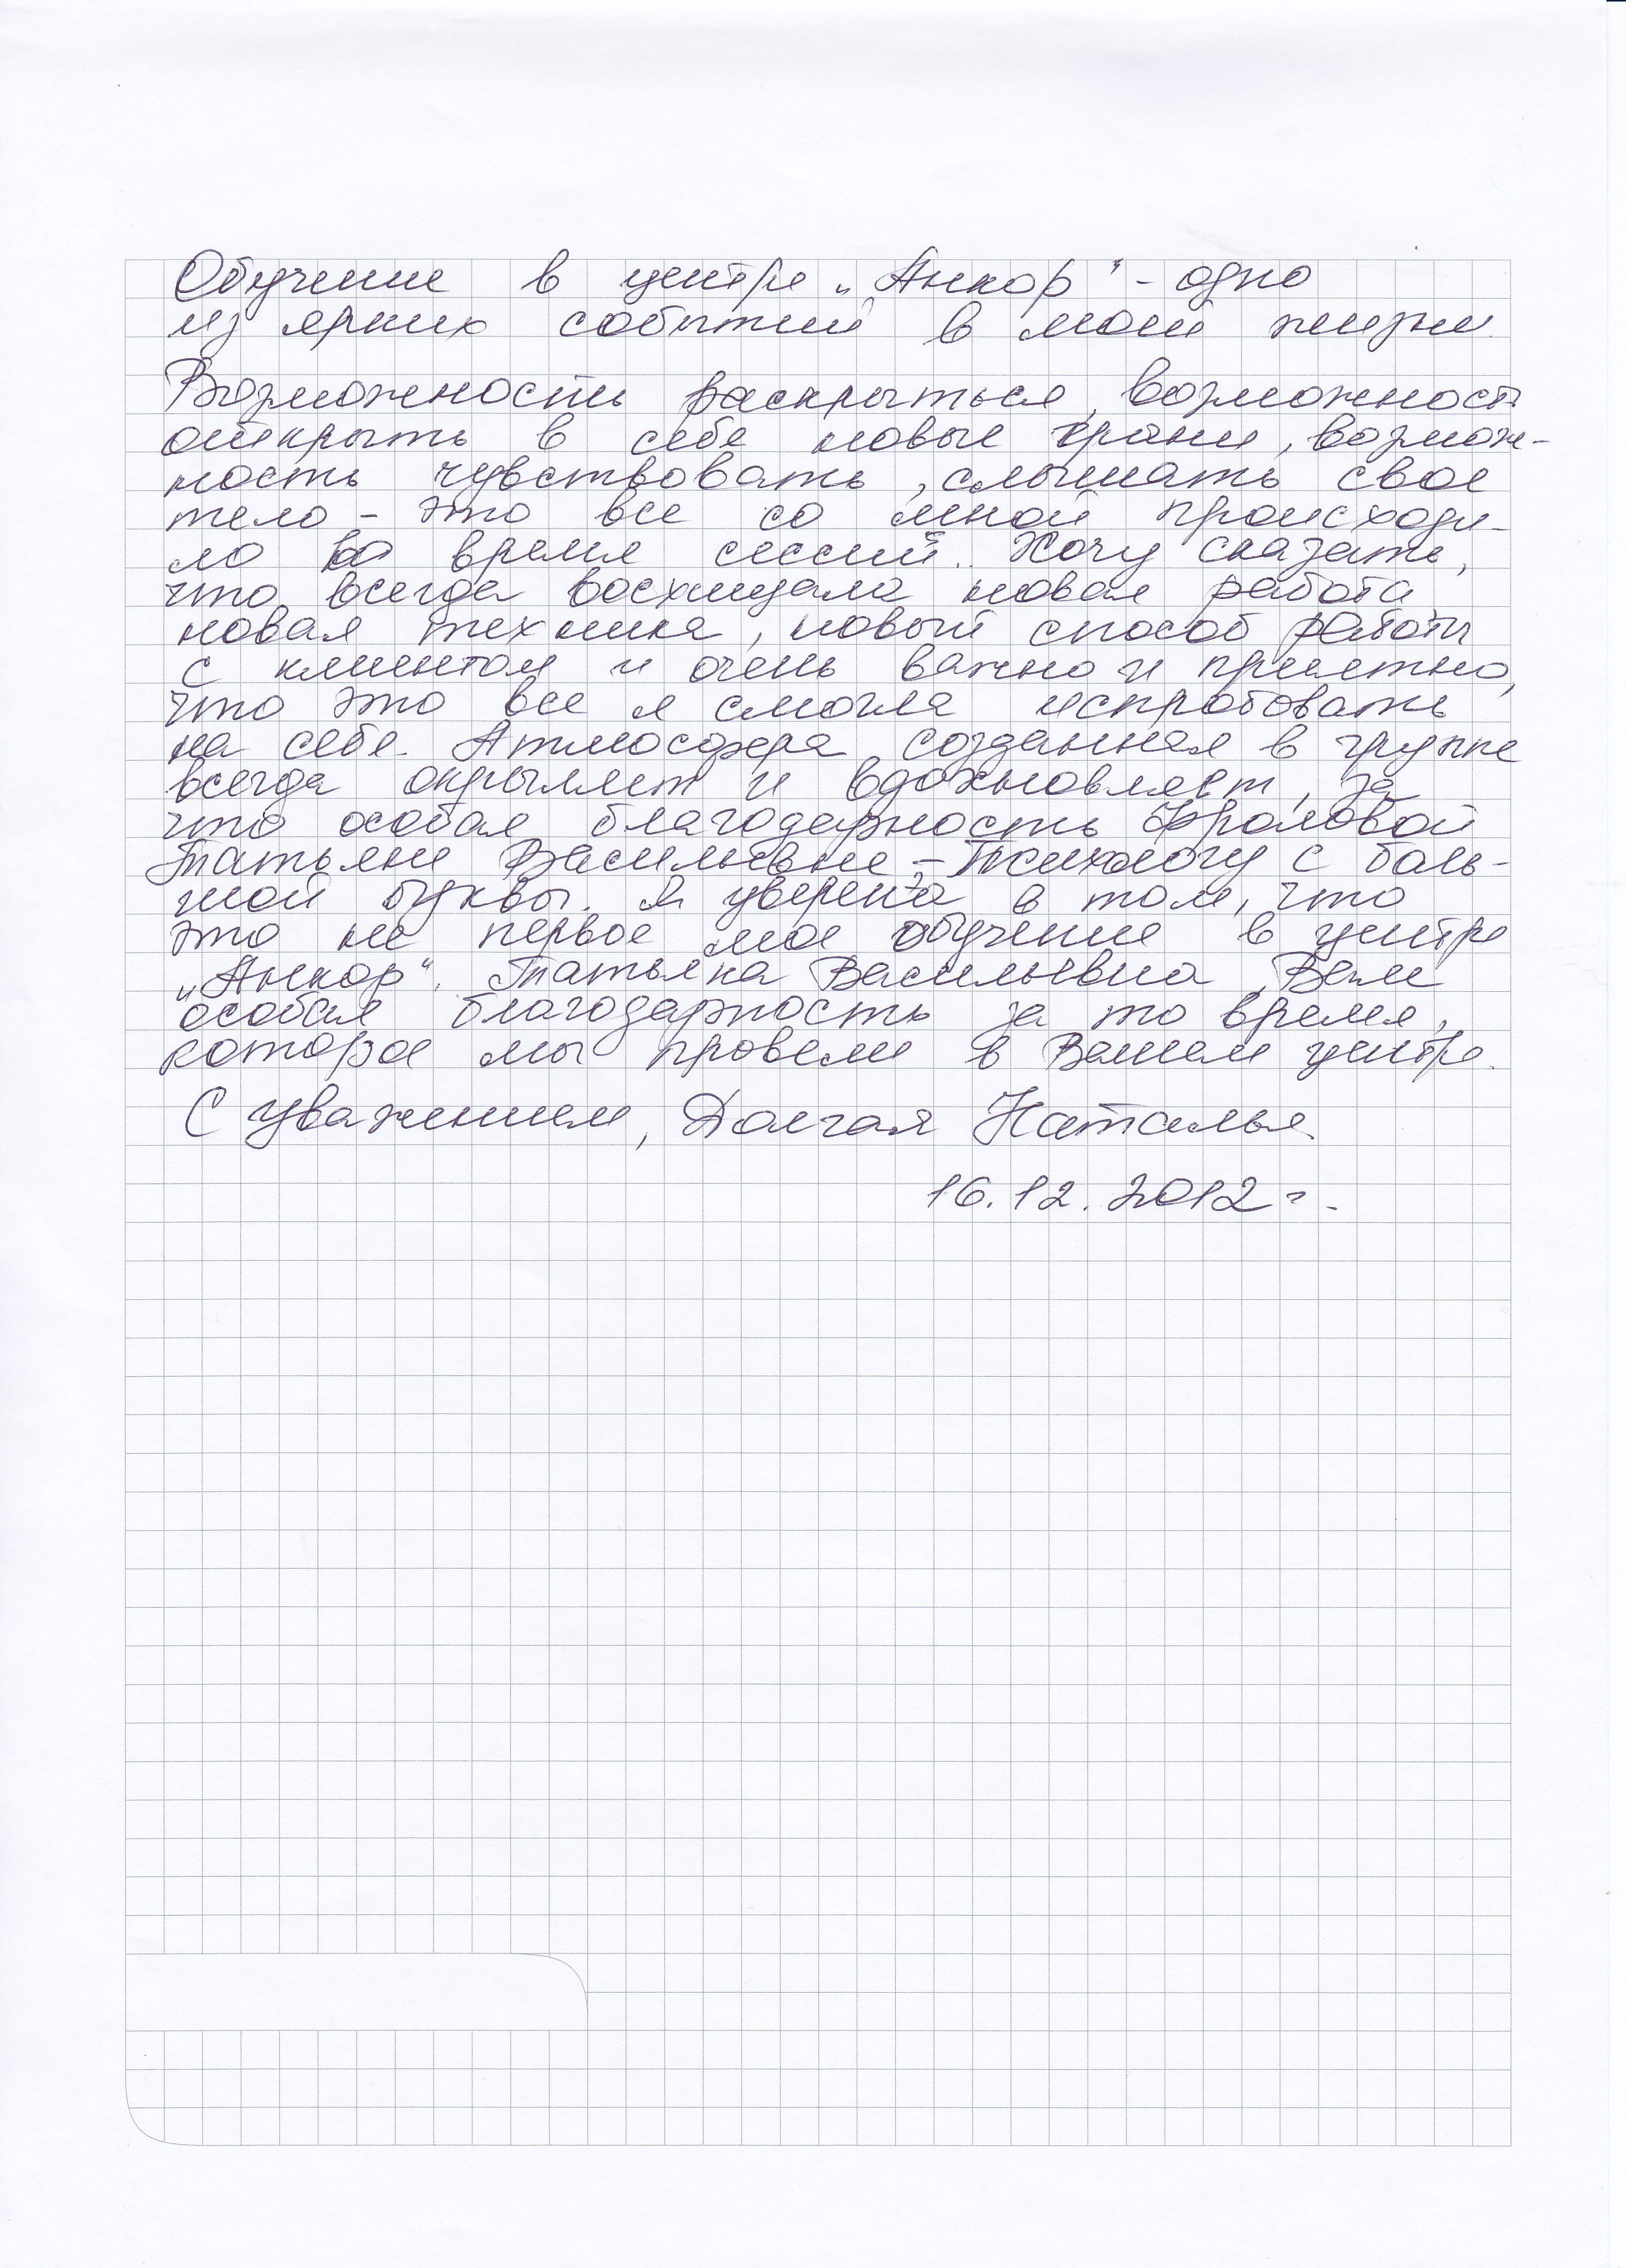 Обучение в центре „Анкор" - одно
из ярких событий в моей жизни.
Возможность раскрыться, возможность
открыть в себе новые грани, возмож-
ность чувствовать, слышать свое
тело - это все со мной происходи-
ло во время сессий. Хочу сказать,
что всегда восхищала новая работа
новая техника, новый способ работы
с клиентом и очень важно и приятно,
что это все я смогла испробовать
на себе. Атмосфера созданная в группе
всегда окрыляет и вдохновляет, за
что особая благодарность Фроловой
Татьяне Васильевне - Психологу с боль-
шой буквы. Я уверена в том, что
это не первое мое обучение в центре
„Анкор". Татьяна Васильевна, Вам
особая благодарность за то время,
которое мы провели в Вашем центре.
С уважением, Долгая Наталья.
16.12.2012 г.